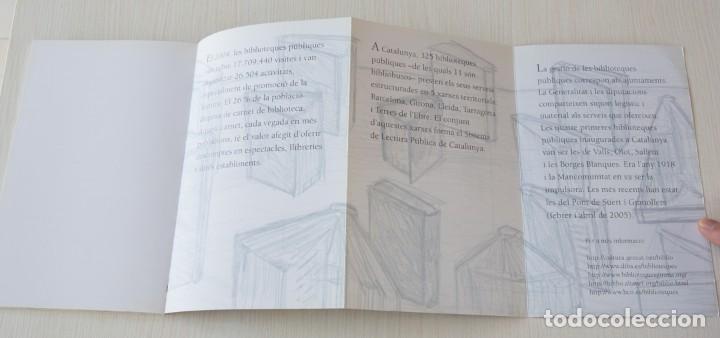 El 2004, les biblioteques públiques
van rebre 17.709.440 visites i van
organitzar 26.504 activitats,
especialment de promoció de la
lectura. El 26 % de la població
disposa de carnet de biblioteca,
un carnet, cada vegada en més
poblacions, té el valor afegit d'oferir
descomptes en espectacles, llibreries
i altres establiments.
A Catalunya, 325 biblioteques
públiques –de les quals 11 són
bibliobusos– presten els seus serveis
estructurades en 5 xarxes territorials:
Barcelona, Girona, Lleida, Tarragona
i Terres de l'Ebre. El conjunt
d'aquestes xarxes forma el Sistema
de Lectura Pública de Catalunya.
La gestió de les biblioteques
públiques correspon als ajuntaments.
La Generalitat i les diputacions
comparteixen suport logístic i
material als serveis que ofereixen.
Les quatre primeres biblioteques
públiques inaugurades a Catalunya
van ser les de Valls, Olot, Sallent
i les Borges Blanques. Era l'any 1918
i la Mancomunitat en va ser la
impulsora. Les més recents han estat
les del Pont de Suert i Granollers
(febrer i abril de 2005).
Per a més informació:
http://cultura.gencat.net/biblio
http://www.diba.es/biblioteques
http://www.bibliotequesgirona.org/
http://biblio.altanet.org/biblio.html
http://www.bcn.es/biblioteques
todocoleccion
todocoleccion.net